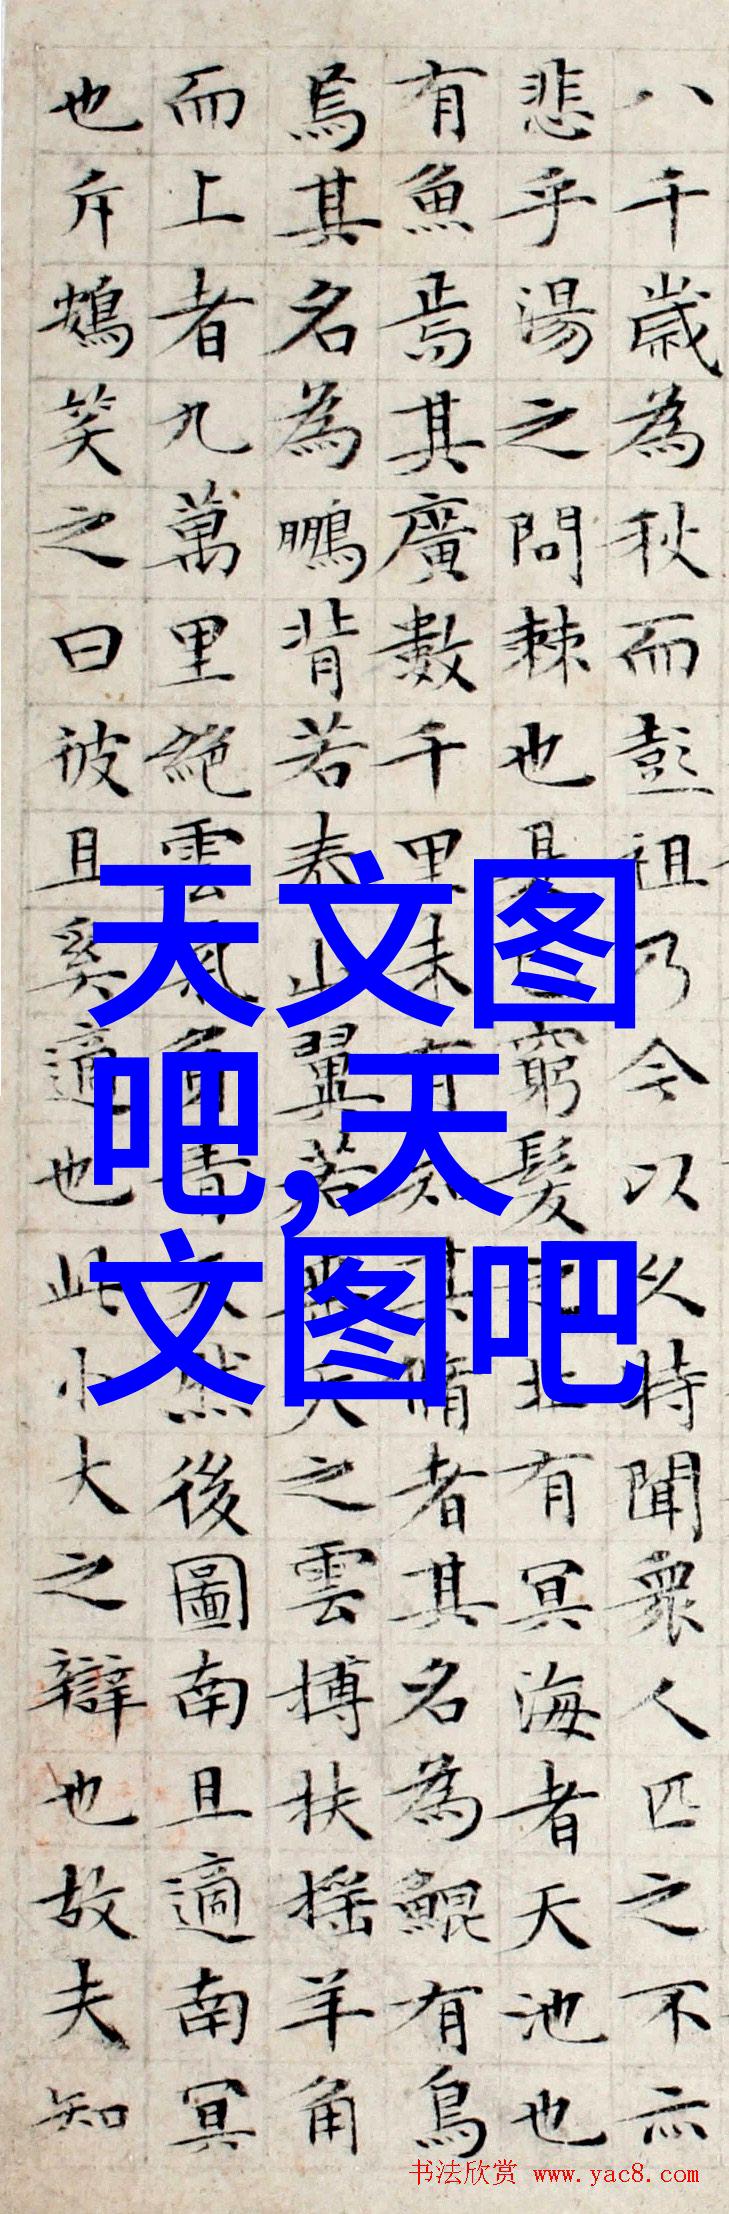 八千歲為秋而彭祖乃今以久特聞衆人匹之不亦
悲乎湯之問棘也是已窮髮之北有冥海者天池也
有魚焉其廣數千里未有知其脩者其名為鯤有鳥
焉其名為鵬背若泰山翼若垂天之雲搏扶摇羊角
而上者九萬里絕雲氣負青天然後圖南且適南冥
也斥鴳笑之曰彼且奚適也此小大之辯也故夫知
天文图
吧,天
文图吧
书法欣赏 www.yac8.com